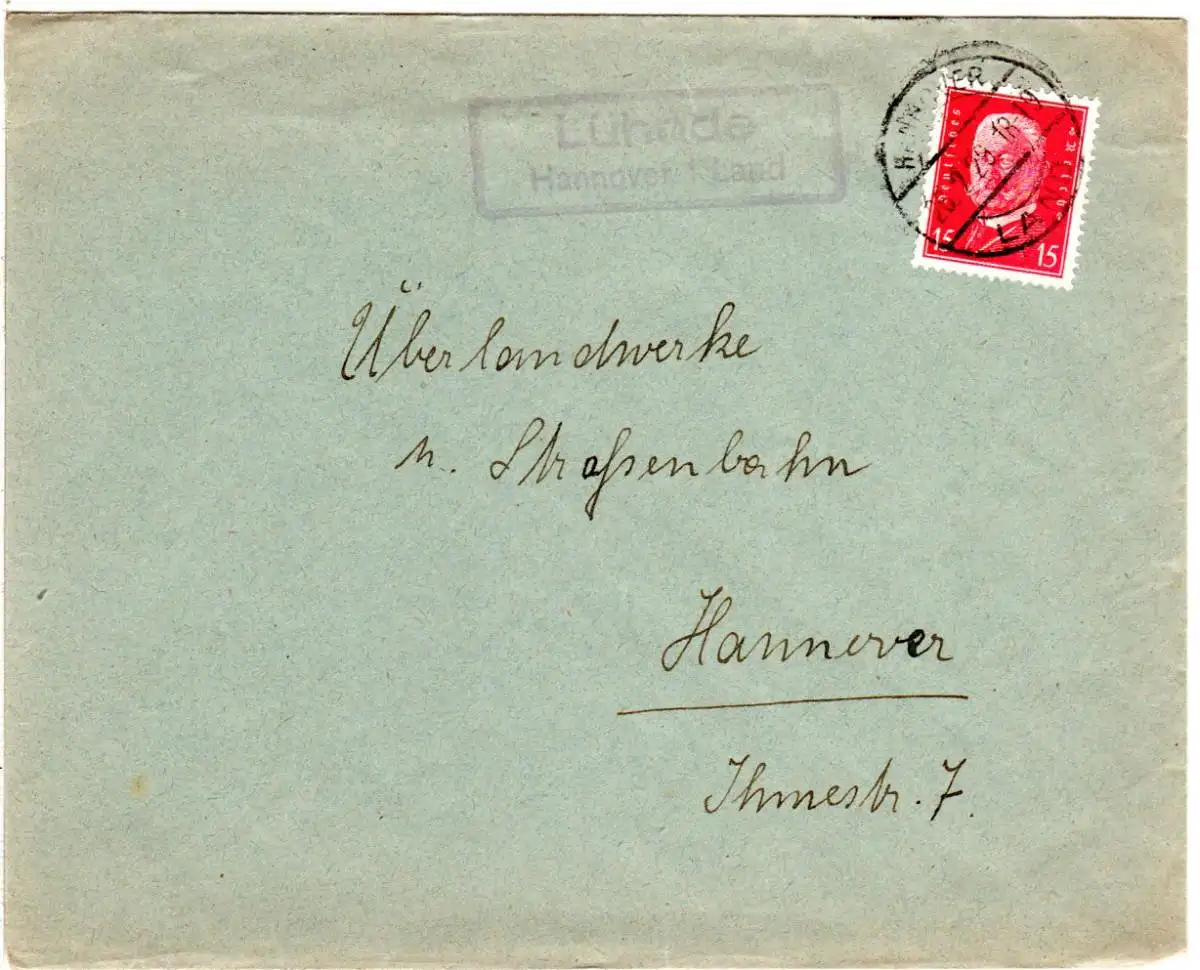 Lühnde
Hannover 1 Land
HANNOVER
LAND
Deutsches Reich
15 15
Überlandwerke
u. Straßenbahn
Hannover
Ihmestr. 7.